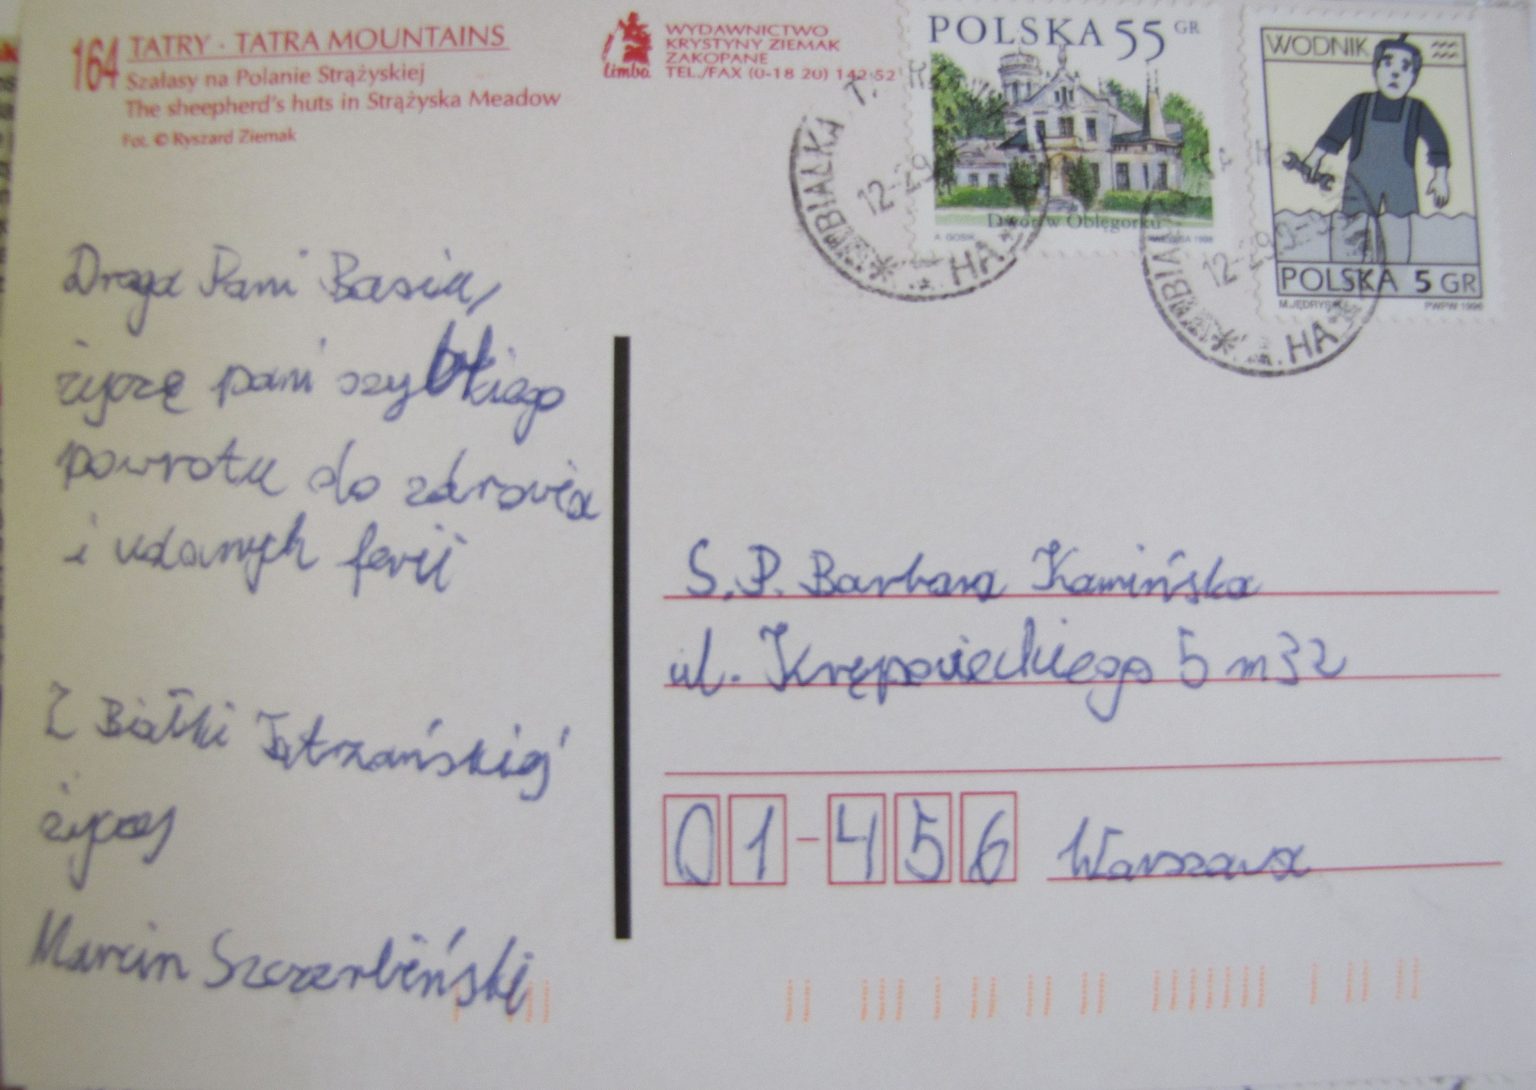 164 TATRY · TATRA MOUNTAINS
Szałasy na Polanie Strążyskiej
The sheepherd's huts in Strążyska Meadow
Fot. © Ryszard Ziemak
limba
WYDAWNICTWO
KRYSTYNY ZIEMAK
ZAKOPANE
TEL./FAX (0-18 20) 142 52
POLSKA 55 GR
Dwór w Oblęgorku
WODNIK
POLSKA 5 GR
M.JĘDRYSIK PWPW 1996
BIAŁKA T.
12-29
HA
BIAŁ
12-29
HA
Droga Pani Basiu,
życzę pani szybkiego
powrotu do zdrowia
i udanych ferii
Z Białki Tatrzańskiej
Marcin Szczerbiński
S.P. Barbara Kamińska
ul. Krępowieckiego 5 m 32
01-456 Warszawa